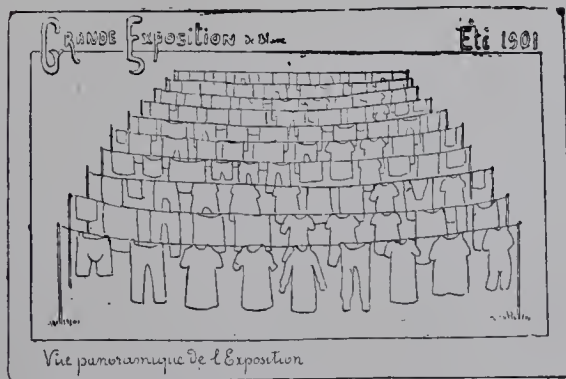 GRANDE EXPOSITION de Blanc
Été 1901
Vue panoramique de l'Exposition